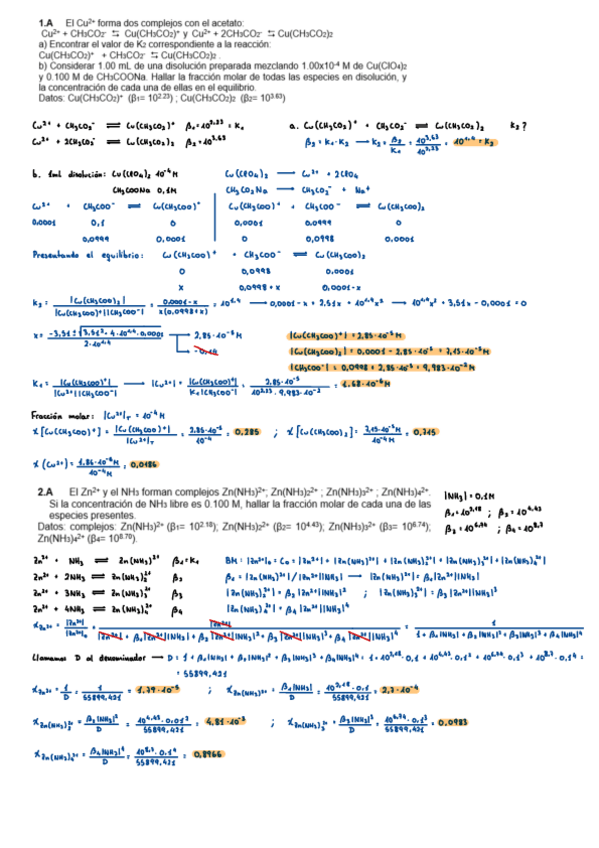 1.A El Cu²⁺ forma dos complejos con el acetato:
Cu²⁺ + CH₃CO₂⁻ ⇆ Cu(CH₃CO₂)⁺ y Cu²⁺ + 2CH₃CO₂⁻ ⇆ Cu(CH₃CO₂)₂
a) Encontrar el valor de K₂ correspondiente a la reacción:
Cu(CH₃CO₂)⁺ + CH₃CO₂⁻ ⇆ Cu(CH₃CO₂)₂ .
b) Considerar 1.00 mL de una disolución preparada mezclando 1.00x10⁻⁴ M de Cu(ClO₄)₂
y 0.100 M de CH₃COONa. Hallar la fracción molar de todas las especies en disolución, y
la concentración de cada una de ellas en el equilibrio.
Datos: Cu(CH₃CO₂)⁺ (β₁= 10²·²³) ; Cu(CH₃CO₂)₂ (β₂= 10³·⁶³)
Cu²⁺ + CH₃CO₂⁻ ⇌ Cu(CH₃CO₂)⁺ β₁ = 10²·²³ = K₁ a. Cu(CH₃CO₂)⁺ + CH₃CO₂⁻ ⇌ Cu(CH₃CO₂)₂ K₂?
Cu²⁺ + 2CH₃CO₂⁻ ⇌ Cu(CH₃CO₂)₂ β₂ = 10³·⁶³ β₂ = K₁·K₂ → K₂ = β₂/K₁ = 10³·⁶³/10²·²³ = 10¹·⁴ = K₂
b. 1ml disolución: Cu(ClO₄)₂ 10⁻⁴M Cu(ClO₄)₂ → Cu²⁺ + 2ClO₄
CH₃COONa 0,1M CH₃CO₂Na → CH₃CO₂⁻ + Na⁺
Cu²⁺ + CH₃COO⁻ ⇌ Cu(CH₃COO)⁺ Cu(CH₃COO)⁺ + CH₃COO⁻ ⇌ Cu(CH₃COO)₂
0,0001 0,1 0 0,0001 0,0999 0
0,0999 0,0001 0 0,0998 0,0001
Presentando el equilibrio: Cu(CH₃COO)⁺ + CH₃COO⁻ ⇌ Cu(CH₃COO)₂
0 0,0998 0,0001
x 0,0998+x 0,0001-x
K₂ = |Cu(CH₃COO)₂| / |Cu(CH₃COO)⁺||CH₃COO⁻| = 0,0001-x / x(0,0998+x) = 10¹·⁴ → 0,0001-x = 2,51x + 10¹·⁴x² → 10¹·⁴x² + 3,51x - 0,0001 = 0
x = -3,51±√3,51²+4·10¹·⁴·0,0001 / 2·10¹·⁴ → 2,85·10⁻⁵M |Cu(CH₃COO)⁺| = 2,85·10⁻⁵M
-0,14 |Cu(CH₃COO)₂| = 0,0001 - 2,85·10⁻⁵ = 7,15·10⁻⁵M
|CH₃COO⁻| = 0,0998 + 2,85·10⁻⁵ = 9,983·10⁻²M
K₁ = |Cu(CH₃COO)⁺| / |Cu²⁺||CH₃COO⁻| → |Cu²⁺| = |Cu(CH₃COO)⁺| / K₁|CH₃COO⁻| = 2,85·10⁻⁵ / 10²·²³·9,983·10⁻² = 1.68·10⁻⁶M
Fracción molar: |Cu²⁺|T = 10⁻⁴M
x[Cu(CH₃COO)⁺] = |Cu(CH₃COO)⁺| / |Cu²⁺|T = 2,85·10⁻⁵ / 10⁻⁴ = 0,285 ; x[Cu(CH₃COO)₂] = 7,15·10⁻⁵M / 10⁻⁴M = 0,715
x(Cu²⁺) = 1,86·10⁻⁶M / 10⁻⁴M = 0,0186
2.A El Zn²⁺ y el NH₃ forman complejos Zn(NH₃)²⁺; Zn(NH₃)₂²⁺ ; Zn(NH₃)₃²⁺ ; Zn(NH₃)₄²⁺.
Si la concentración de NH₃ libre es 0.100 M, hallar la fracción molar de cada una de las
especies presentes.
Datos: complejos: Zn(NH₃)²⁺ (β₁= 10²·¹⁸); Zn(NH₃)₂²⁺ (β₂= 10⁴·⁴³); Zn(NH₃)₃²⁺ (β₃= 10⁶·⁷⁴);
Zn(NH₃)₄²⁺ (β₄= 10⁸·⁷⁰).
|NH₃| = 0.1M
β₁ = 10²·¹⁸ ; β₂ = 10⁴·⁴³
β₃ = 10⁶·⁷⁴ ; β₄ = 10⁸·⁷
Zn²⁺ + NH₃ ⇌ Zn(NH₃)²⁺ β₁ = K₁ BM: |Zn²⁺|₀ = C₀ = |Zn²⁺| + |Zn(NH₃)²⁺| + |Zn(NH₃)₂²⁺| + |Zn(NH₃)₃²⁺| + |Zn(NH₃)₄²⁺|
Zn²⁺ + 2NH₃ ⇌ Zn(NH₃)₂²⁺ β₂ β₁ = |Zn(NH₃)²⁺| / |Zn²⁺||NH₃| → |Zn(NH₃)²⁺| = β₁|Zn²⁺||NH₃|
Zn²⁺ + 3NH₃ ⇌ Zn(NH₃)₃²⁺ β₃ |Zn(NH₃)₂²⁺| = β₂|Zn²⁺||NH₃|² ; |Zn(NH₃)₃²⁺| = β₃|Zn²⁺||NH₃|³
Zn²⁺ + 4NH₃ ⇌ Zn(NH₃)₄²⁺ β₄ |Zn(NH₃)₄²⁺| = β₄|Zn²⁺||NH₃|⁴
x Zn²⁺ = |Zn²⁺| / |Zn²⁺|₀ = |Zn²⁺| / |Zn²⁺| + β₁|Zn²⁺||NH₃| + β₂|Zn²⁺||NH₃|² + β₃|Zn²⁺||NH₃|³ + β₄|Zn²⁺||NH₃|⁴ = 1 / 1 + β₁|NH₃| + β₂|NH₃|² + β₃|NH₃|³ + β₄|NH₃|⁴
Llamamos D al denominador → D = 1 + β₁|NH₃| + β₂|NH₃|² + β₃|NH₃|³ + β₄|NH₃|⁴ = 1 + 10²·¹⁸·0.1 + 10⁴·⁴³·0.1² + 10⁶·⁷⁴·0.1³ + 10⁸·⁷·0.1⁴ =
= 55899,421
x Zn²⁺ = 1/D = 1/55899,421 = 1.79·10⁻⁵ ; x Zn(NH₃)²⁺ = β₁|NH₃|/D = 10²·¹⁸·0.1/55899.421 = 2,7·10⁻⁴
x Zn(NH₃)₂²⁺ = β₂|NH₃|²/D = 10⁴·⁴³·0.01²/55899,421 = 4,81·10⁻³ ; x Zn(NH₃)₃²⁺ = β₃|NH₃|³/D = 10⁶·⁷⁴·0.1³/55899,421 = 0,0983
x Zn(NH₃)₄²⁺ = β₄|NH₃|⁴/D = 10⁸·⁷·0.1⁴/55899,421 = 0,8966